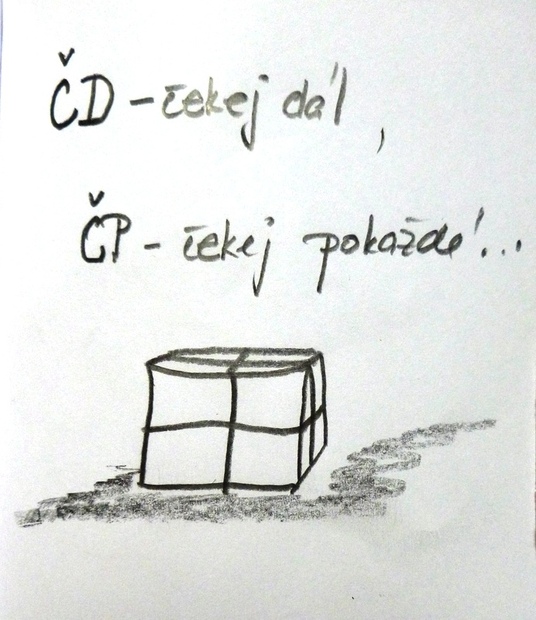 ČD - čekej dál,
ČP - čekej pokaždé...